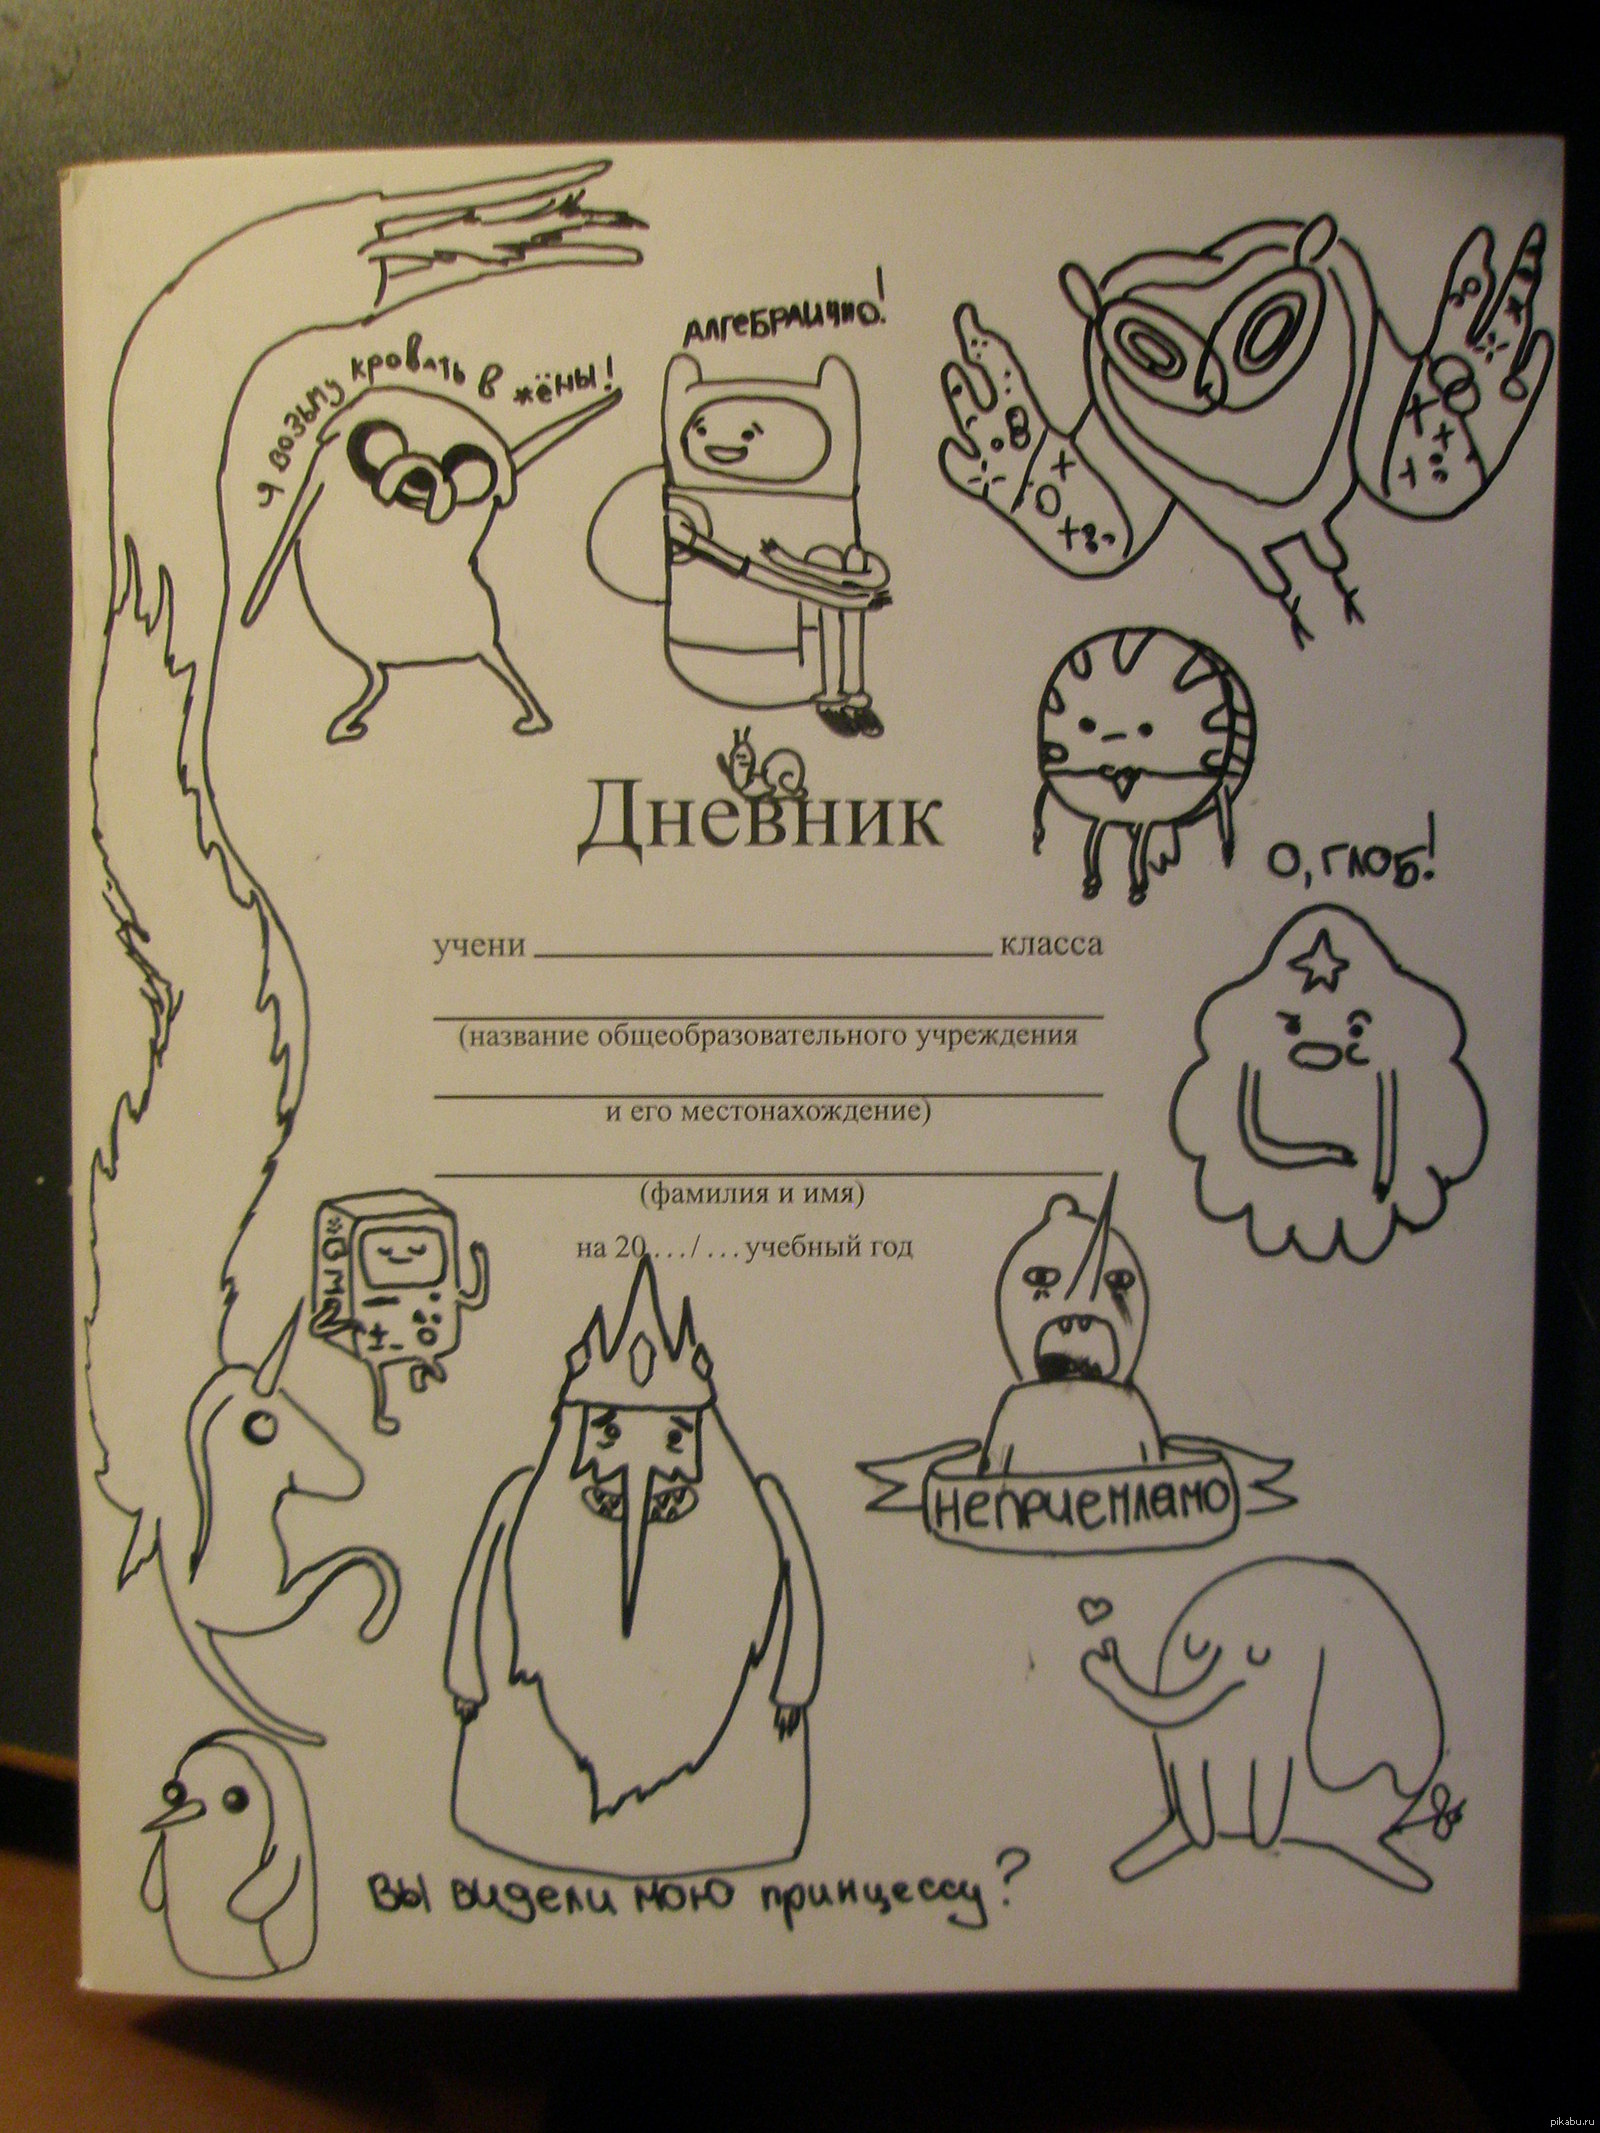 Алгебраично!
Я возьму кровать в жёны!
Дневник
О, глоб!
учени класса
(название общеобразовательного учреждения
и его местонахождение)
(фамилия и имя)
на 20 .../ ... учебный год
BMO
неприемламо
Вы видели мою принцессу?
pikabu.ru